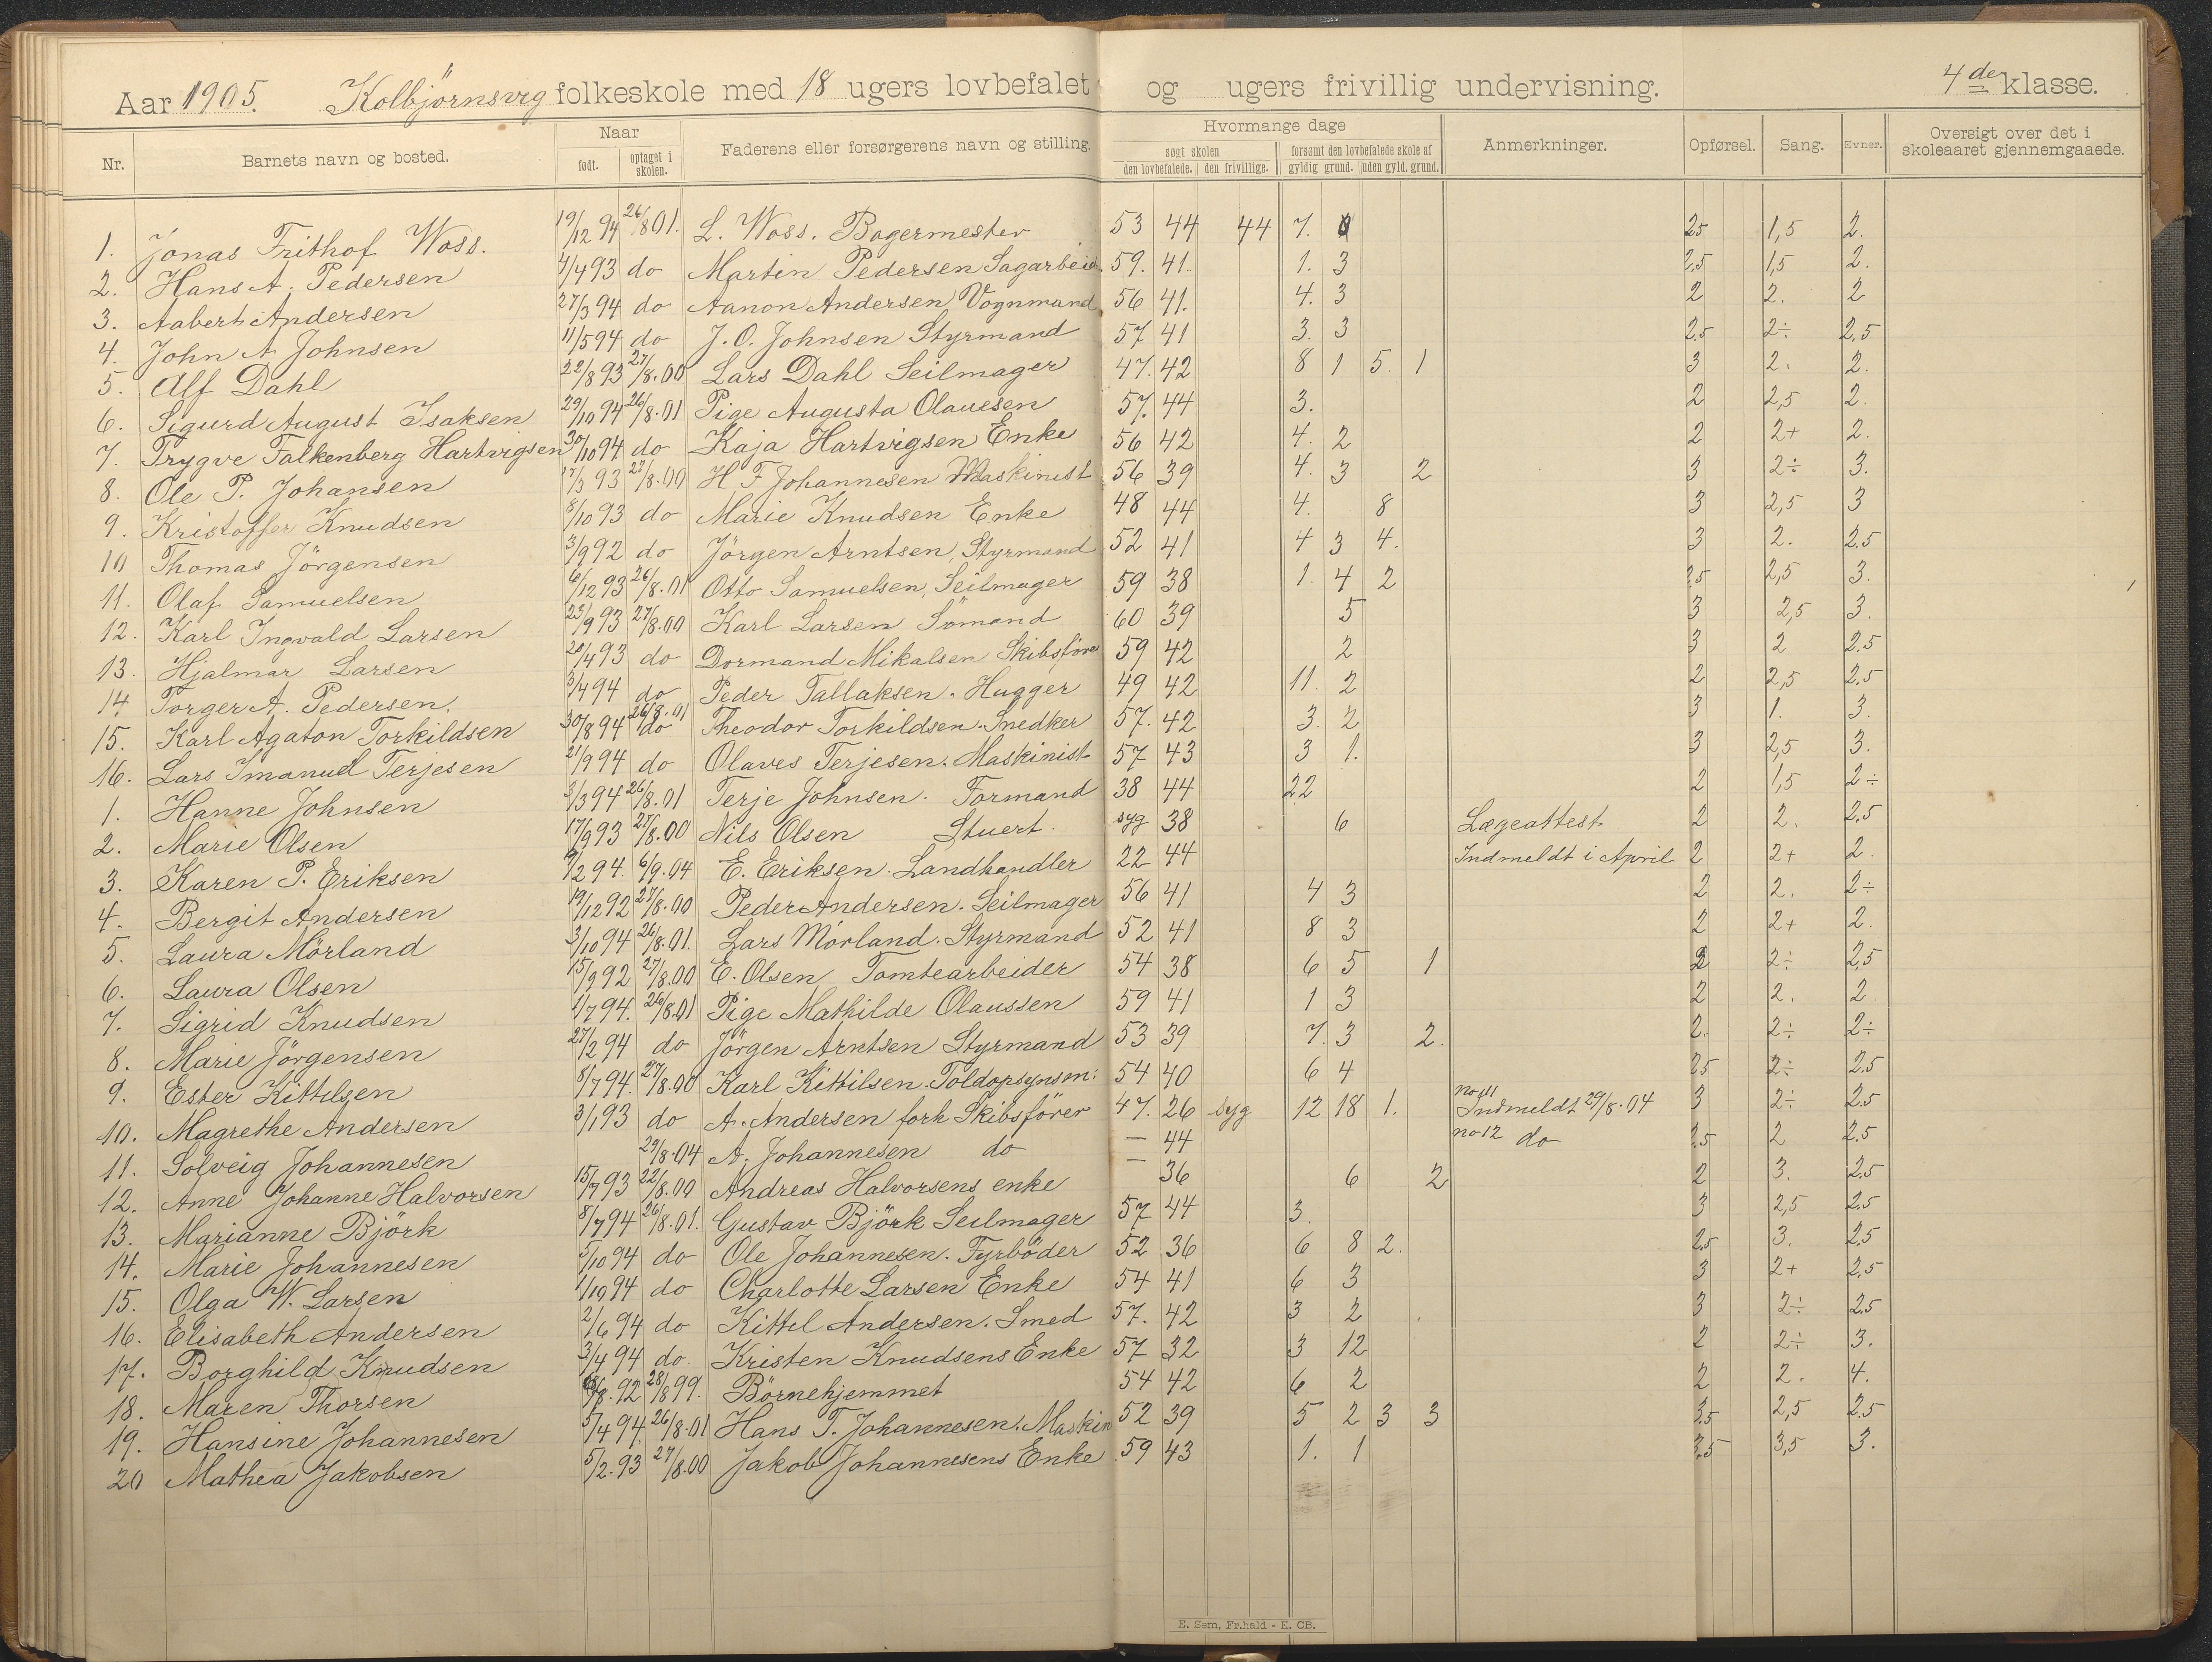 Aar 1905. Kolbjörnsvig folkeskole med 18 ugers lovbefalet og ugers frivillig undervisning. 4de klasse.
Nr. Barnets navn og bosted. Naar født. optaget i skolen. Faderens eller forsørgerens navn og stilling. Hvormange dage søgt skolen den lovbefalede. den frivillige. forsømt den lovbefalede skole af gyldig grund. uden gyld. grund. Anmerkninger. Opførsel. Sang. Evner. Oversigt over det i skoleaaret gjennemgaaede.
1. Jonas Frithof Woss. 19/12 94 26/8 01. L. Woss. Bagermester 53 44 44 7. 2.5 1,5 2.
2. Hans A. Pedersen 4/4 93 do Martin Pedersen Sagarbeid. 59. 41. 1. 3 2.5 1,5 2.
3. Aabert Andersen 27/3 94 do Aanon Andersen Vognmand 56 41. 4. 3 2 2. 2
4. John A Johnsen 11/5 94 do J. O. Johnsen Styrmand 57 41 3. 3 2.5 2÷ 2,5
5. Alf Dahl 22/8 93 27/8.00 Lars Dahl Seilmager 47. 42 8 1 5. 1 3 2. 2.
6. Sigurd August Isaksen 29/10 94 26/8.01 Pige Augusta Olauesen 57. 44 3. 2 2,5 2.
7. Trygve Falkenberg Hartvigsen 30/10 94 do Kaja Hartvigsen Enke 56 42 4. 2 2 2+ 2.
8. Ole P. Johansen 17/3 93 27/8.00 H F Johannesen Maskinist 56 39 4. 3 2 3 2÷ 3.
9. Kristoffer Knudsen 8/10 93 do Marie Knudsen Enke 48 44 4. 8 3 2,5 3
10 Thomas Jörgensen 3/9 92 do Jörgen Arntsen, Styrmand 52 41 4 3 4. 3 2. 2.5
11. Olaf Samuelsen 6/12 93 26/8.01 Otto Samuelsen, Seilmager 59 38 1. 4 2 2.5 2,5 3.
12. Karl Ingvald Larsen 23/9 93 27/8.00 Karl Larsen Sömand 60 39 5 3 2,5 3.
13. Hjalmar Larsen 20/4 93 do Dormand Mikalsen Skibsförer 59 42 2 3 2 2.5
14 Torger A. Pedersen. 3/4 94 do Peder Tallaksen. Hugger 49 42 11. 2 2 2,5 2.5
15. Karl Agaton Torkildsen 30/8 94 26/8.01 do Theodor Torkildsen. Snedker 57. 42 3. 2 3 1. 3.
16. Lars Imanuel Terjesen 21/9 94 do Olaves Terjesen. Maskinist 57 43 3 1. 3 2,5 3.
1. Hanne Johnsen 3/3 94 26/8.01 Terje Johnsen. Formand 38 44 22 2 1,5 2÷
2. Marie Olsen 17/9 93 27/8.00 Nils Olsen Stuert. syg 38 6 Lægeattest 2 2. 2.5
3. Karen P. Eriksen /2 94. 6/9.04 E. Eriksen. Landhandler 22 44 Indmeldt i April 2 2+ 2.
4. Bergit Andersen 19/12 92 27/8.00 Peder Andersen. Seilmager 56 41 4 3 2 2. 2÷
5. Laura Mörland 3/10 94 26/8.01. Lars Mörland. Styrmand 52 41 8 3 2 2+ 2.
6. Laura Olsen 15/9 92 27/8.00 E. Olsen Tomtearbeider 54 38 6 5 1 2 2÷ 2,5
7. Sigrid Knudsen 1/7 94. 26/8.01 Pige Mathilde Olaussen 59 41 1 3 2 2. 2
8. Marie Jörgensen 27/2 94 do Jörgen Arntsen Styrmand 53 39 7. 3 2. 2. 2÷ 2÷
9. Ester Kittilsen 8/7 94. 27/8.00 Karl Kittilsen. Toldopsynsm: 54 40 6 4 2.5 2÷ 2.5
10. Magrethe Andersen 3/1 93 do A. Andersen forh Skibsförer 47. 26 syg 12 18 1. no 11 Indmeldt 29/8.04 3 2÷ 2.5
11. Solveig Johannesen 29/8.04 A. Johannesen do — 44 no 12 do 2.5 2 2.5
12. Anne Johanne Halvorsen 15/7 93 22/8.00 Andreas Halvorsens enke — 36 6 2 2 3. 2.5
13. Marianne Björk 8/7 94 26/8.01. Gustav Björk Seilmager 57 44 3. 3 2,5 2.5
14. Marie Johannesen 5/10 94 do Ole Johannesen. Fyrböder 52 36 6 8 2. 2.5 3. 2.5
15. Olga W. Larsen 1/10 94 do Charlotte Larsen Enke 54 41 6 3 3 2+ 2.5
16. Elisabeth Andersen 2/6 94 do Kittel Andersen. Smed 57. 42 3 2 3 2÷ 2.5
17. Borghild Knudsen 3/4 94 do. Kristen Knudsens Enke 57 32 3 12 2 2÷ 3.
18. Maren Thorsen /8.92 28/8 99. Börnehjemmet 54 42 6 2 2 2. 4.
19. Hansine Johannesen 5/4 94. 26/8.01 Hans T. Johannesen. Maskin 52 39 5 2 3 3 3.5 2,5 2.5
20 Mathea Jakobsen 5/2.93 27/8.00 Jakob Johannesens Enke 59 43 1. 1 3.5 3,5 3.
E. Sem, Fr.hald - E. CB.